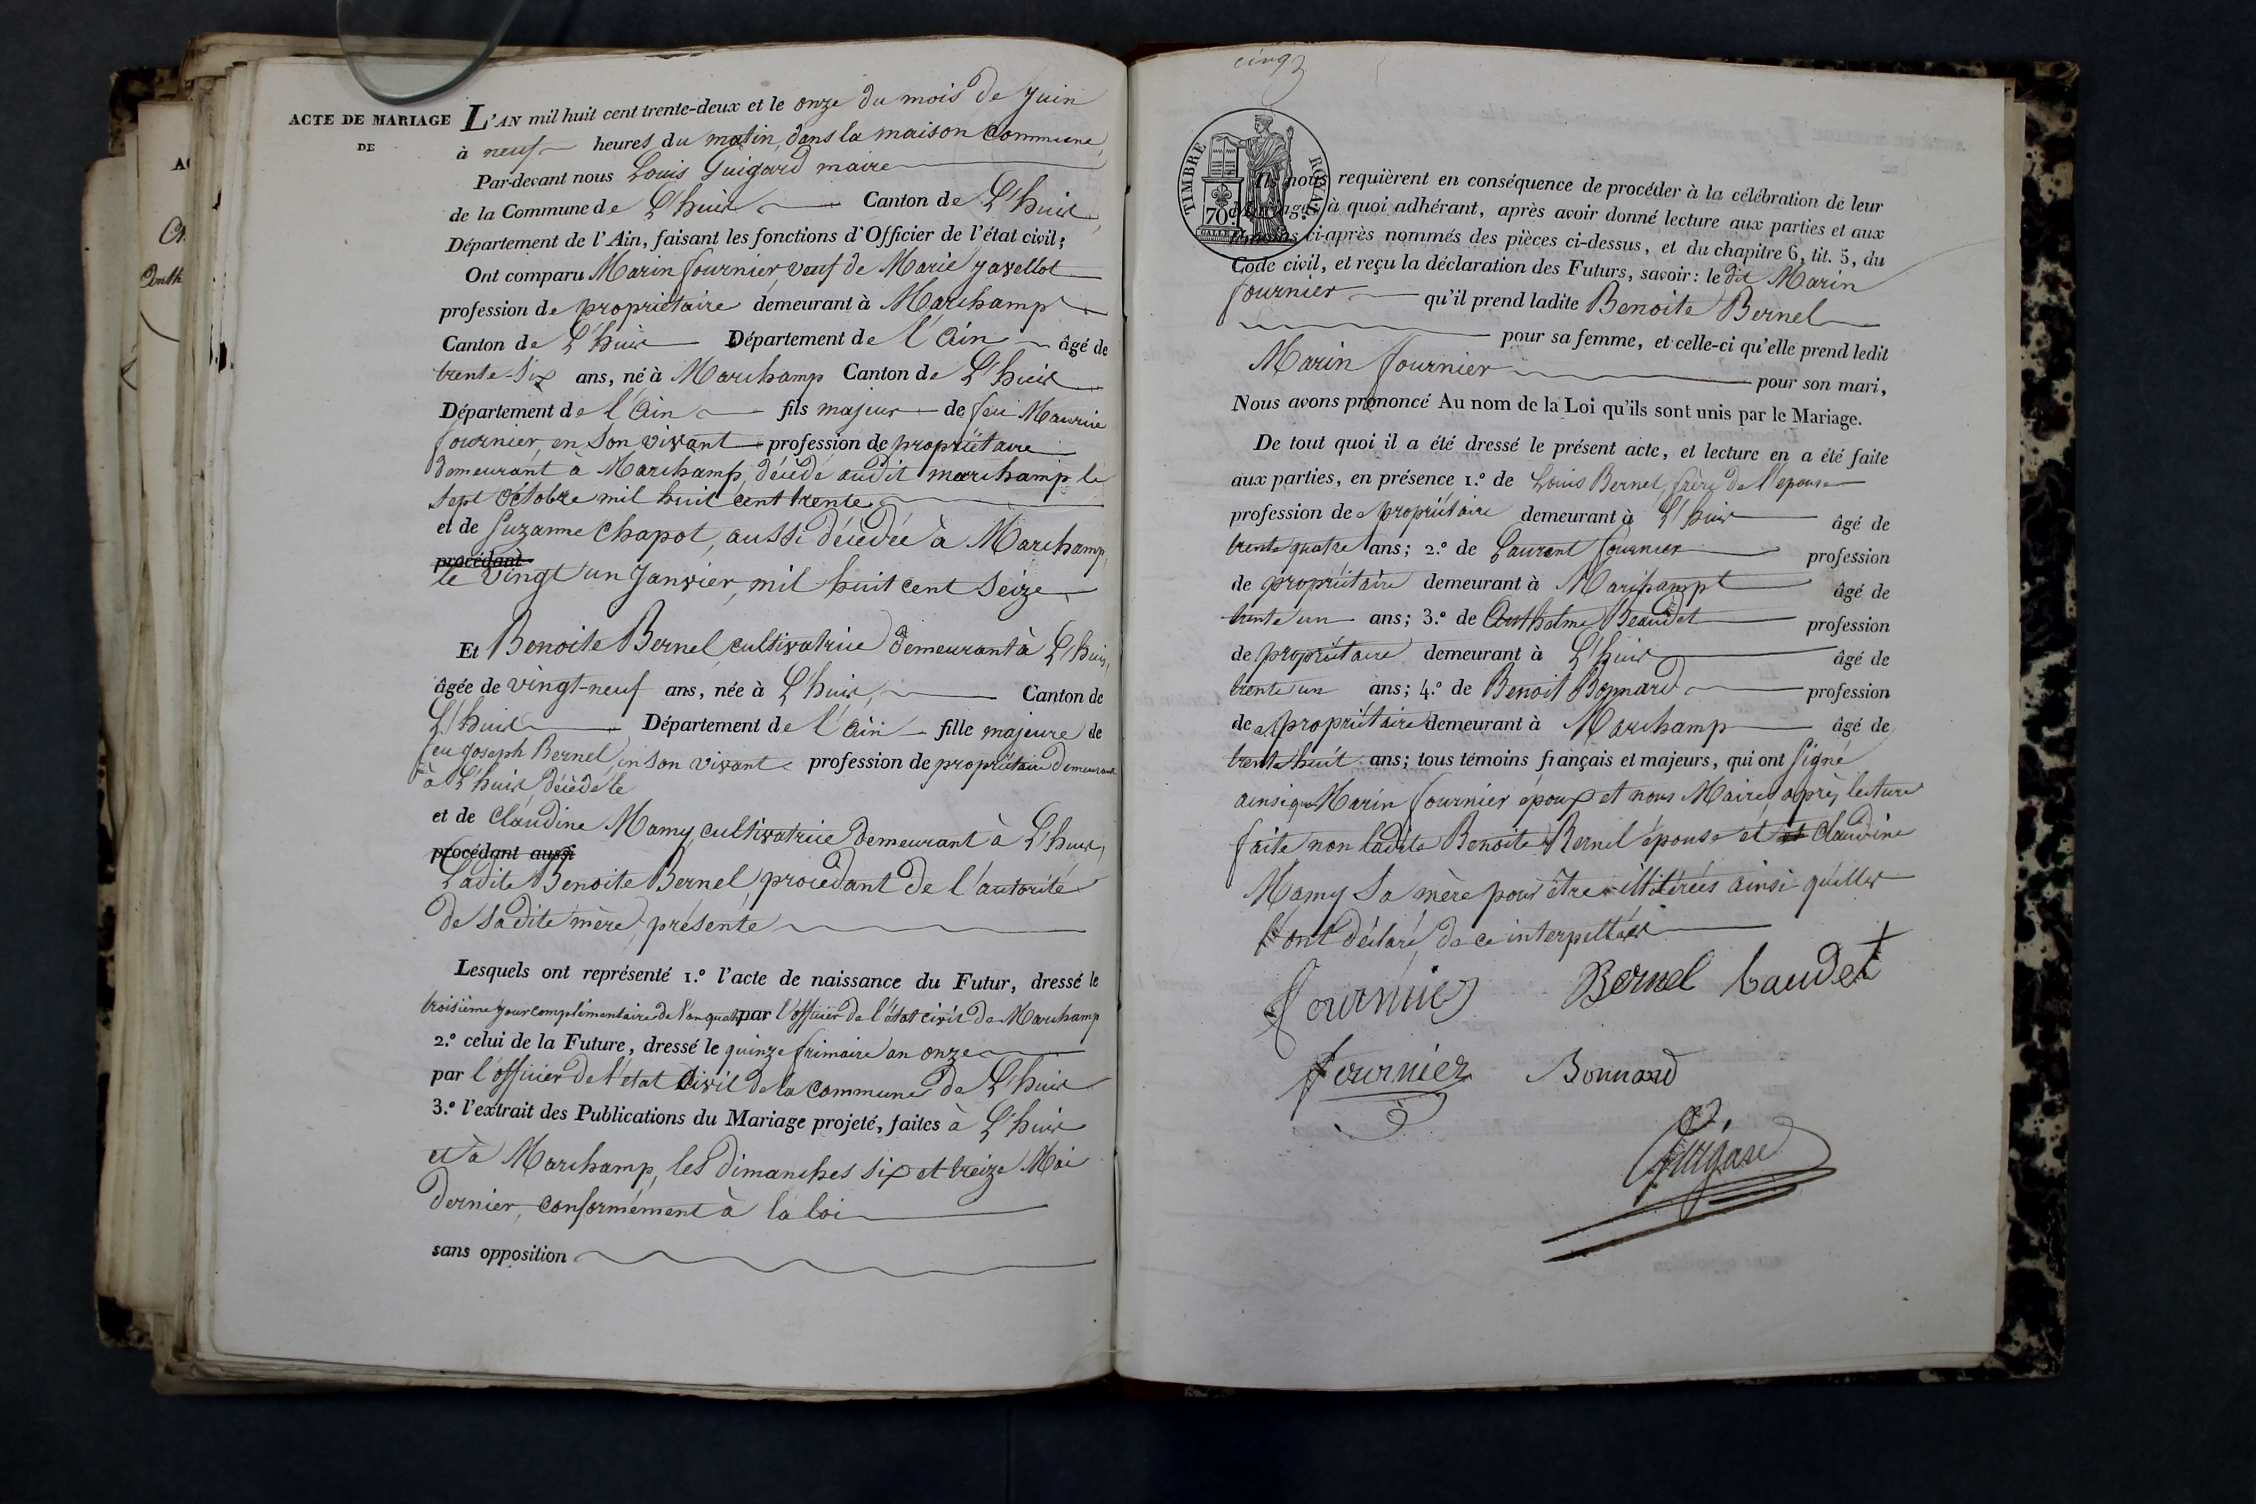 ACTE DE MARIAGE
DE
L'AN mil huit cent trente-deux et le onze du mois de Juin
à neuf heures du matin, dans la maison commune,
Par-devant nous Louis Guigard maire
de la Commune de L'huis Canton de L'huis
Département de l'Ain, faisant les fonctions d'Officier de l'état civil;
Ont comparu Marin fournier, veuf de Marie Javellot
profession de propriétaire demeurant à Marchamp
Canton de L'huis Département de l'Ain âgé de
trente-six ans, né à Marchamp Canton de L'huis
Département de l'Ain fils majeur de feu Maurice
fournier, en son vivant profession de propriétaire
demeurant à Marchamp, décédé audit marchamp le
sept octobre mil huit cent trente,
et de Suzanne Chapot, aussi décédée à Marchamp,
procédant
le vingt un Janvier, mil huit cent seize
Et Benoite Bernel, cultivatrice demeurant à L'huis,
âgée de vingt-neuf ans, née à L'huis, Canton de
L'huis Département de l'Ain fille majeure de
feu Joseph Bernel, en son vivant profession de propriétaire demeurant
à L'huis, décédé le
et de Claudine Mamy, cultivatrice demeurant à L'huis,
procédant aussi
Ladite Benoite Bernel, procédant de l'autorité
de sadite mère, présente
Lesquels ont représenté 1.º l'acte de naissance du Futur, dressé le
troisième jour complémentaire de l'an quatre par l'officier de l'état civil de Marchamp
2.º celui de la Future, dressé le quinze frimaire an onze
par l'officier de l'état Civil de la commune de L'huis
3.º l'extrait des Publications du Mariage projeté, faites à L'huis
et à Marchamp, les dimanches six et treize Mai
dernier, conformément à la loi
sans opposition
cinq
TIMBRE ROYAL
70
Ils nous requièrent en conséquence de procéder à la célébration de leur
Mariage, à quoi adhérant, après avoir donné lecture aux parties et aux
témoins ci-après nommés des pièces ci-dessus, et du chapitre 6, tit. 5, du
Code civil, et reçu la déclaration des Futurs, savoir: le dit Marin
fournier qu'il prend ladite Benoite Bernel
pour sa femme, et celle-ci qu'elle prend ledit
Marin fournier pour son mari,
Nous avons prononcé Au nom de la Loi qu'ils sont unis par le Mariage.
De tout quoi il a été dressé le présent acte, et lecture en a été faite
aux parties, en présence 1.º de Louis Bernel, frère de l'epouse
profession de propriétaire demeurant à L'huis âgé de
trente quatre ans; 2.º de Laurent fournier profession
de propriétaire demeurant à Marchampt âgé de
trente un ans; 3.º de Anthelme Beaudet profession
de propriétaire demeurant à L'huis âgé de
trente un ans; 4.º de Benoit Bonnard profession
de propriétaire demeurant à Marchamp âgé de
trente huit ans; tous témoins français et majeurs, qui ont Signé
ainsi que Marin fournier époux et nous Maire après lecture
faite non ladite Benoite Bernel épouse et et Claudine
Mamy Sa mère pour être illitérées ainsi qu'elles
l'ont déclaré de ce interpellées
fournier Bernel baudet
fournier Bonnard
Guigard